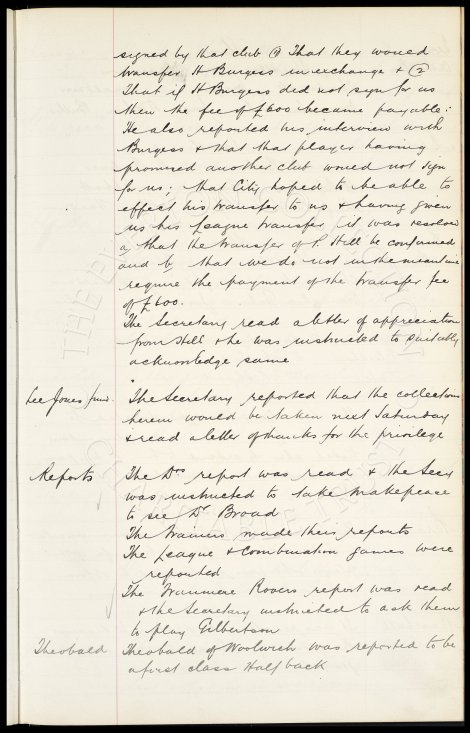 signed by that club ① That they would
transfer H Burgess in exchange & ②
That if H Burgess did not sign for us
then the fee of £600 became payable:
He also reported his interview with
Burgess & that that player having
promised another club would not sign
for us; that City hoped to be able to
effect his transfer to us & having given
us his League transfer it was resolved
a that the transfer of P. Hill be confirmed
and b that we do not in the meantime
require the payment of the transfer fee
of £600.
The Secretary read a letter of appreciation
from Hill & he was instructed to suitably
acknowledge same
Lee Jones fund. The Secretary reported that the collections
herein would be taken next Saturday
& read a letter of thanks for the privilege
Reports The Drs report was read & the Secy
was instructed to take Makepeace
to see Dr Broad
The Trainers made their reports
The League & Combination games were
reported
The Tranmere Rovers report was read
& the Secretary instructed to ask them
to play Gilbertson
Theobald Theobald of Woolwich was reported to be
a first class Half back